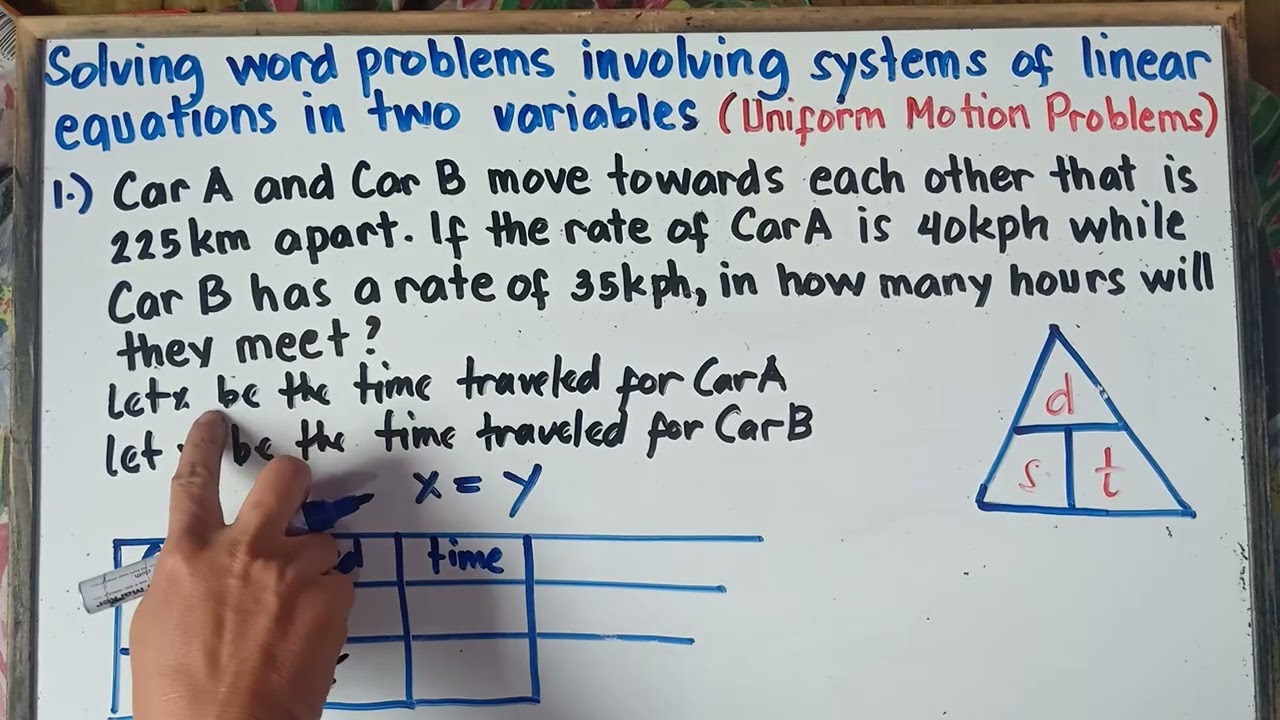 Solving word problems involving systems of linear
equations in two variables (Uniform Motion Problems)
1.) Car A and Car B move towards each other that is
225km apart. If the rate of Car A is 40kph while
Car B has a rate of 35kph, in how many hours will
they meet?
Let x be the time traveled for Car A
let be the time traveled for Car B
x = y
time
d
s t